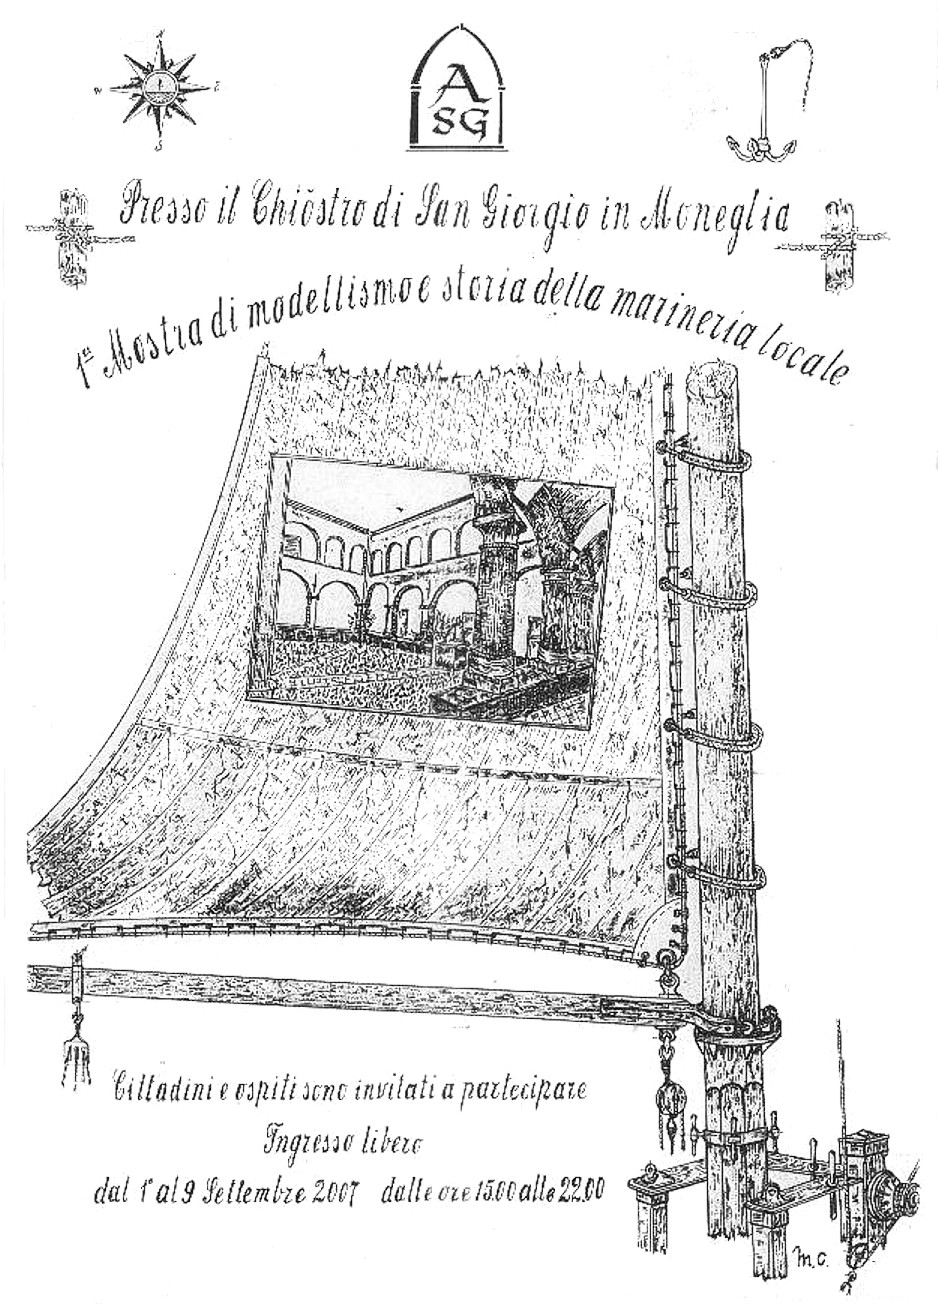 N
W
E
S
A
SG
Presso il Chiostro di San Giorgio in Moneglia
1ª Mostra di modellismo e storia della marineria locale
Cittadini e ospiti sono invitati a partecipare
Ingresso libero
dal 1° al 9 Settembre 2007 dalle ore 15.00 alle 22.00
m.c.